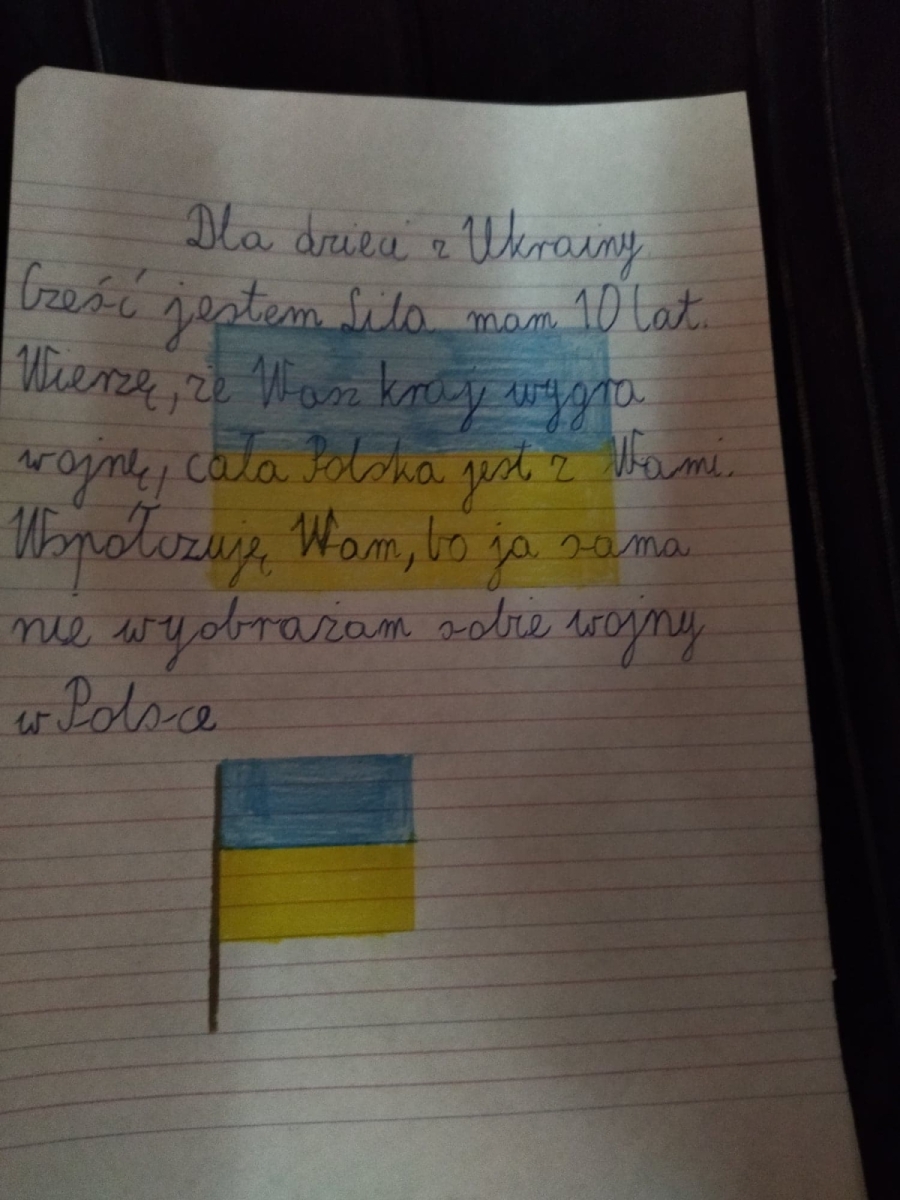 Dla dzieci z Ukrainy
Cześć jestem Lila mam 10 lat.
Wierzę, że Wasz kraj wygra
wojnę, cała Polska jest z Wami.
Współczuję Wam, bo ja sama
nie wyobrażam sobie wojny
w Polsce